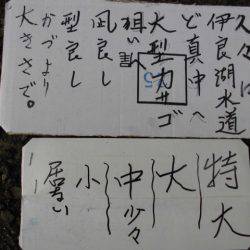 久々に
伊良湖水道
ど真中へ
大型カサゴ
狙い割
凪良し
型良し
かづより
大きさで。
特大
大
中少々
小
居ない